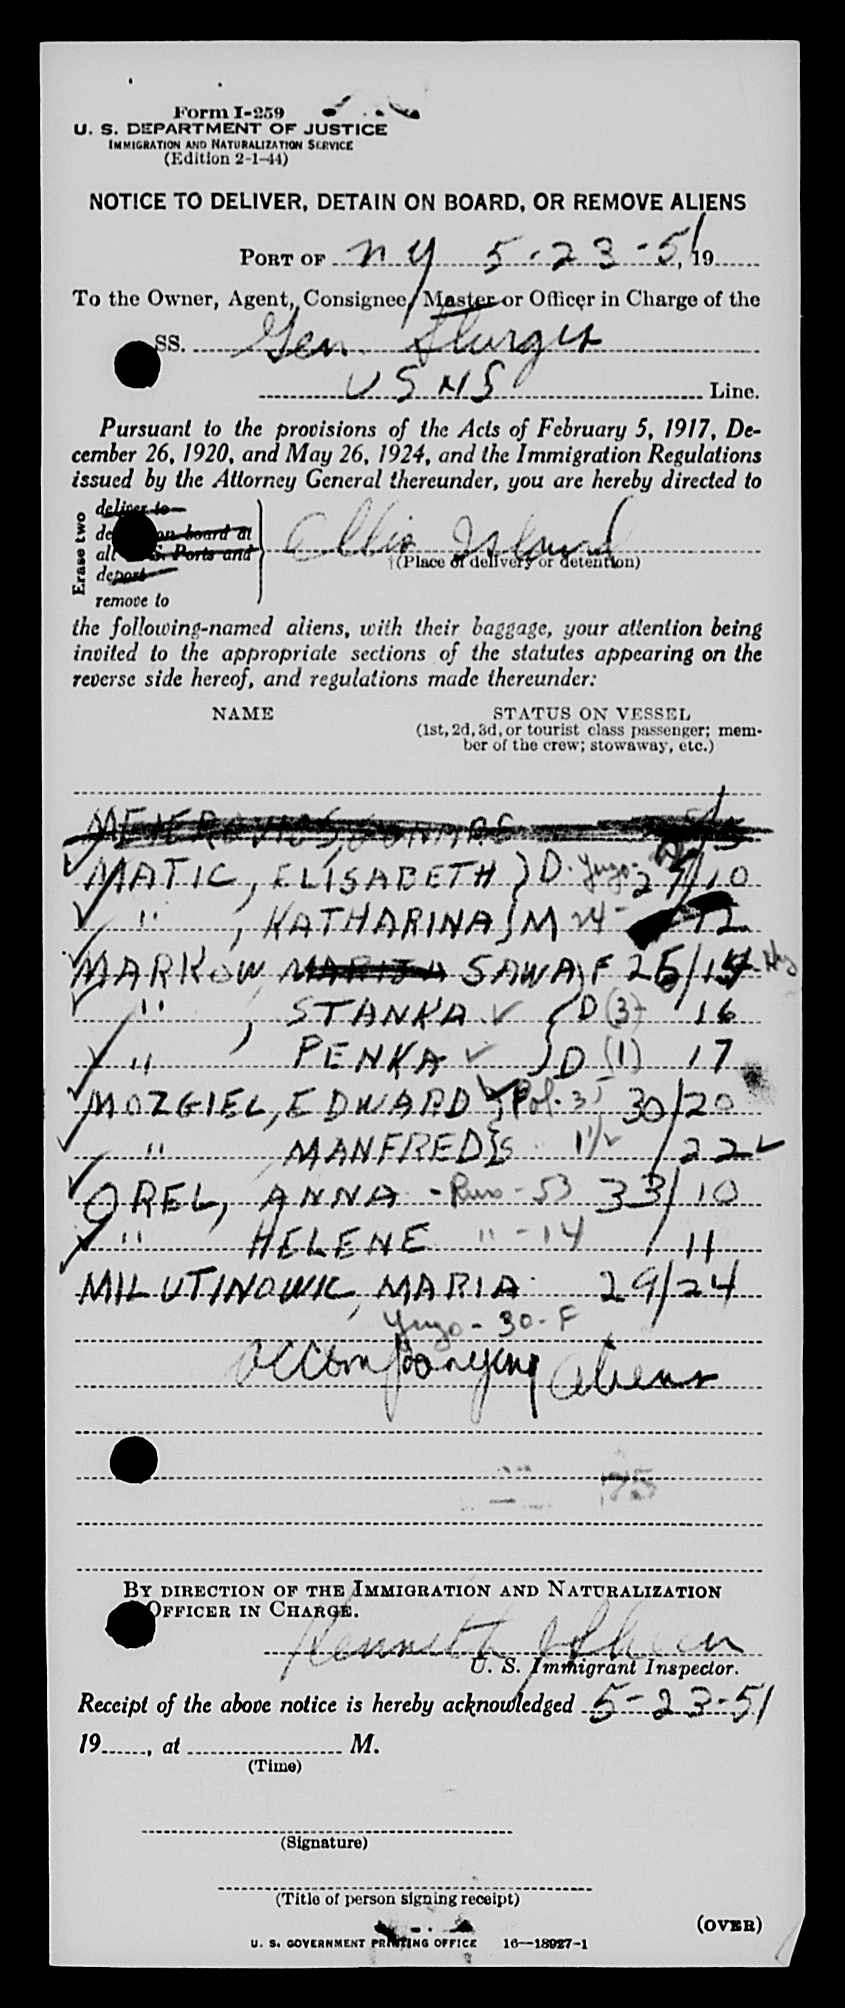 Form I-259
U. S. DEPARTMENT OF JUSTICE
IMMIGRATION AND NATURALIZATION SERVICE
(Edition 2-1-44)
NOTICE TO DELIVER, DETAIN ON BOARD, OR REMOVE ALIENS
PORT OF NY 5-23-51, 19
To the Owner, Agent, Consignee, Master or Officer in Charge of the
SS. Gen. Sturgis
USNS Line.
Pursuant to the provisions of the Acts of February 5, 1917, De-
cember 26, 1920, and May 26, 1924, and the Immigration Regulations
issued by the Attorney General thereunder, you are hereby directed to
Erase two
deliver to
on board at
all U.S. Ports and
deport
remove to
Ellis Island
(Place of delivery or detention)
the following-named aliens, with their baggage, your attention being
invited to the appropriate sections of the statutes appearing on the
reverse side hereof, and regulations made thereunder:
NAME STATUS ON VESSEL
(1st, 2d, 3d, or tourist class passenger; mem-
ber of the crew; stowaway, etc.)
MATIC, ELISABETH } D. Yugo- 29/10
" , KATHARINA } M 24- 12
MARKOW SAWA } F 25/14
" , STANKA ✓ } D (3) 16
" PENKA ✓ } D (1) 17
MOZGIEL, EDWARD } Pol. 35 30/20
" MANFRED } S 1 1/2 / 22 ✓
OREL, ANNA - Rus - 53 33/10
" HELENE " - 14 / 11
MILUTINOWIC, MARIA 29/24
Yugo - 30 - F
accompanying aliens
BY DIRECTION OF THE IMMIGRATION AND NATURALIZATION
OFFICER IN CHARGE.
Kenneth
U. S. Immigrant Inspector.
Receipt of the above notice is hereby acknowledged 5-23-51
19......, at ............ M.
(Time)
(Signature)
(Title of person signing receipt)
(OVER)
U. S. GOVERNMENT PRINTING OFFICE 16—18927-1